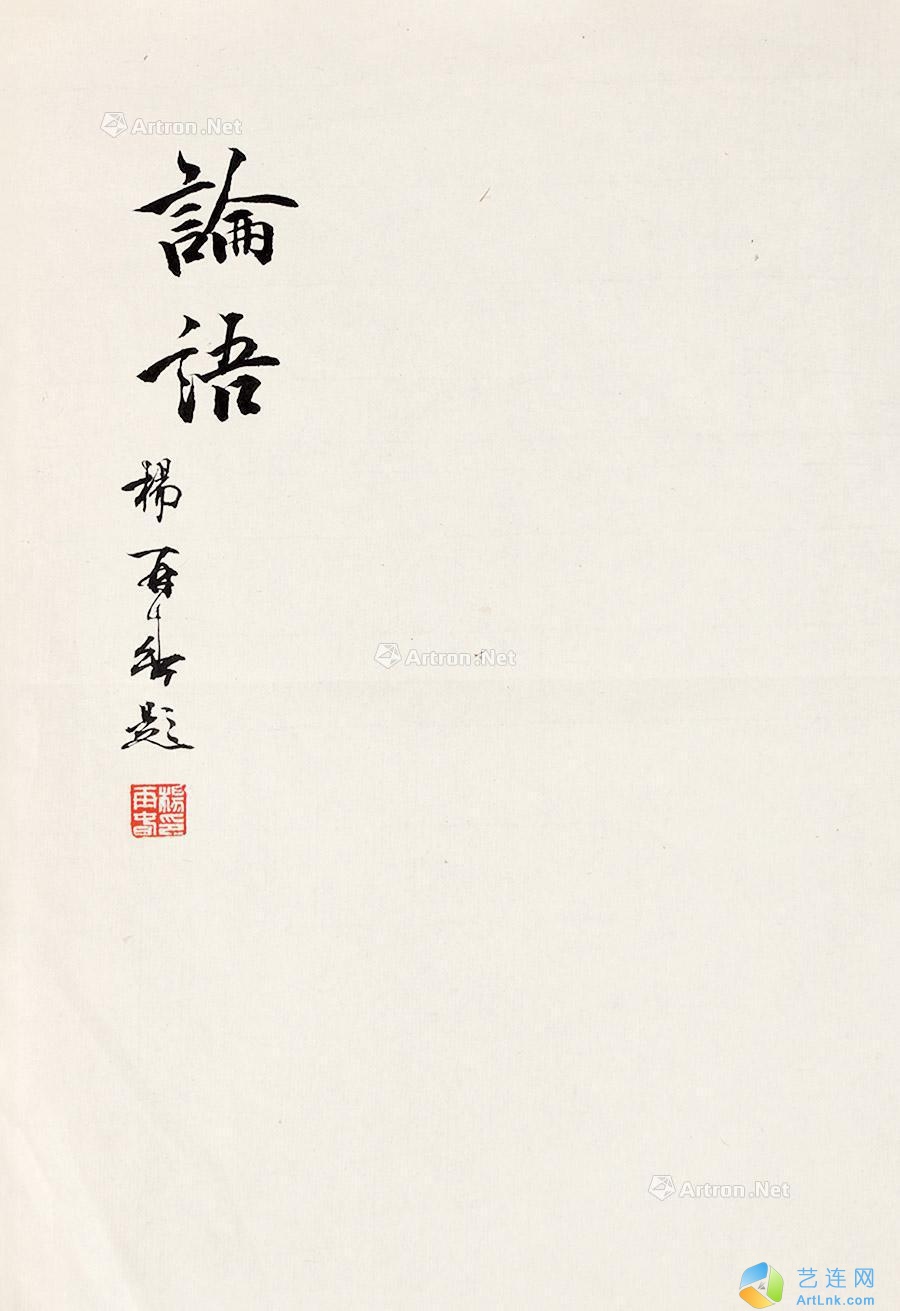 Artron.Net
論語
楊再春題
楊印再春
Artron.Net
Artron.Net
艺连网
ArtLnk.com